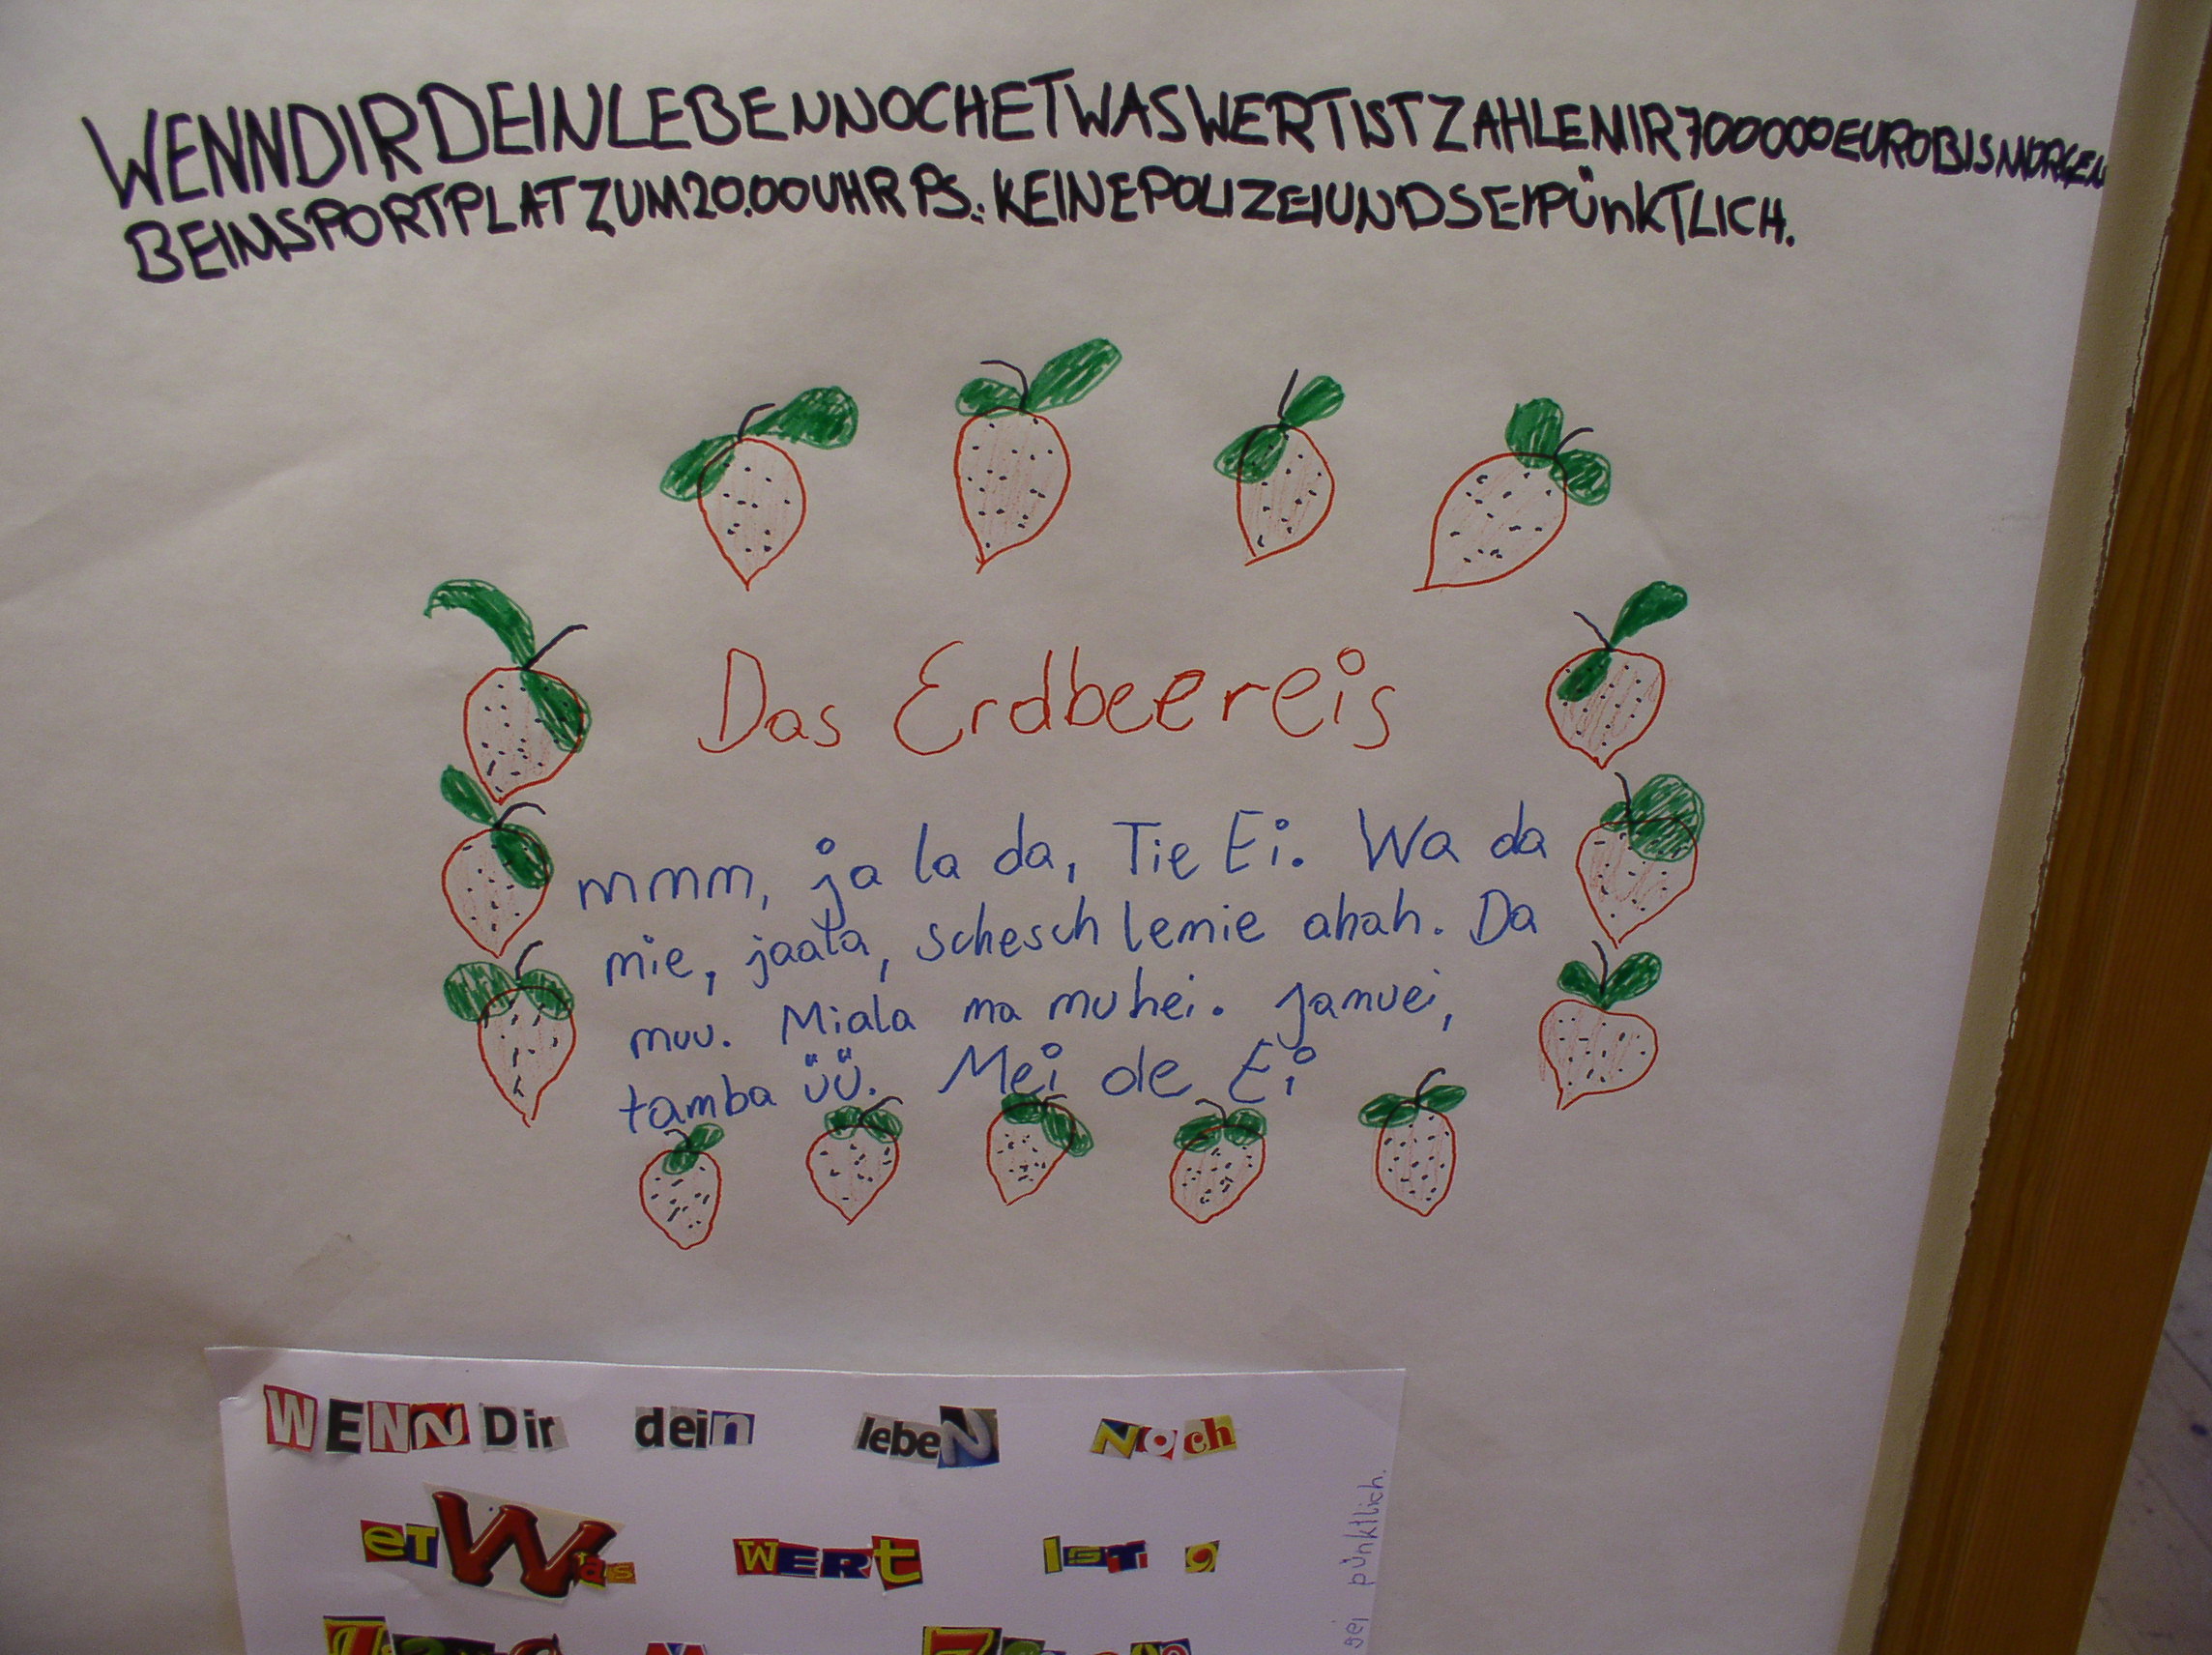 WENNDIRDEINLEBENNOCHETWASWERTISTZAHLEMIR700000EUROBISMORGEN
BEIMSPORTPLATZUM20.00UHRPS.:KEINEPOLIZEIUNDSEIPÜNKTLICH.
Das Erdbeereis
mmm, ja la da, Tie Ei. Wa da
mie, jaala, schesch lemie ahah. Da
muu. Miala ma muhei. Jamuei,
tamba üü. Mei de Ei
WENN Dir dein lebeN Noch
eTWas WERt IST,
sei pünktlich.